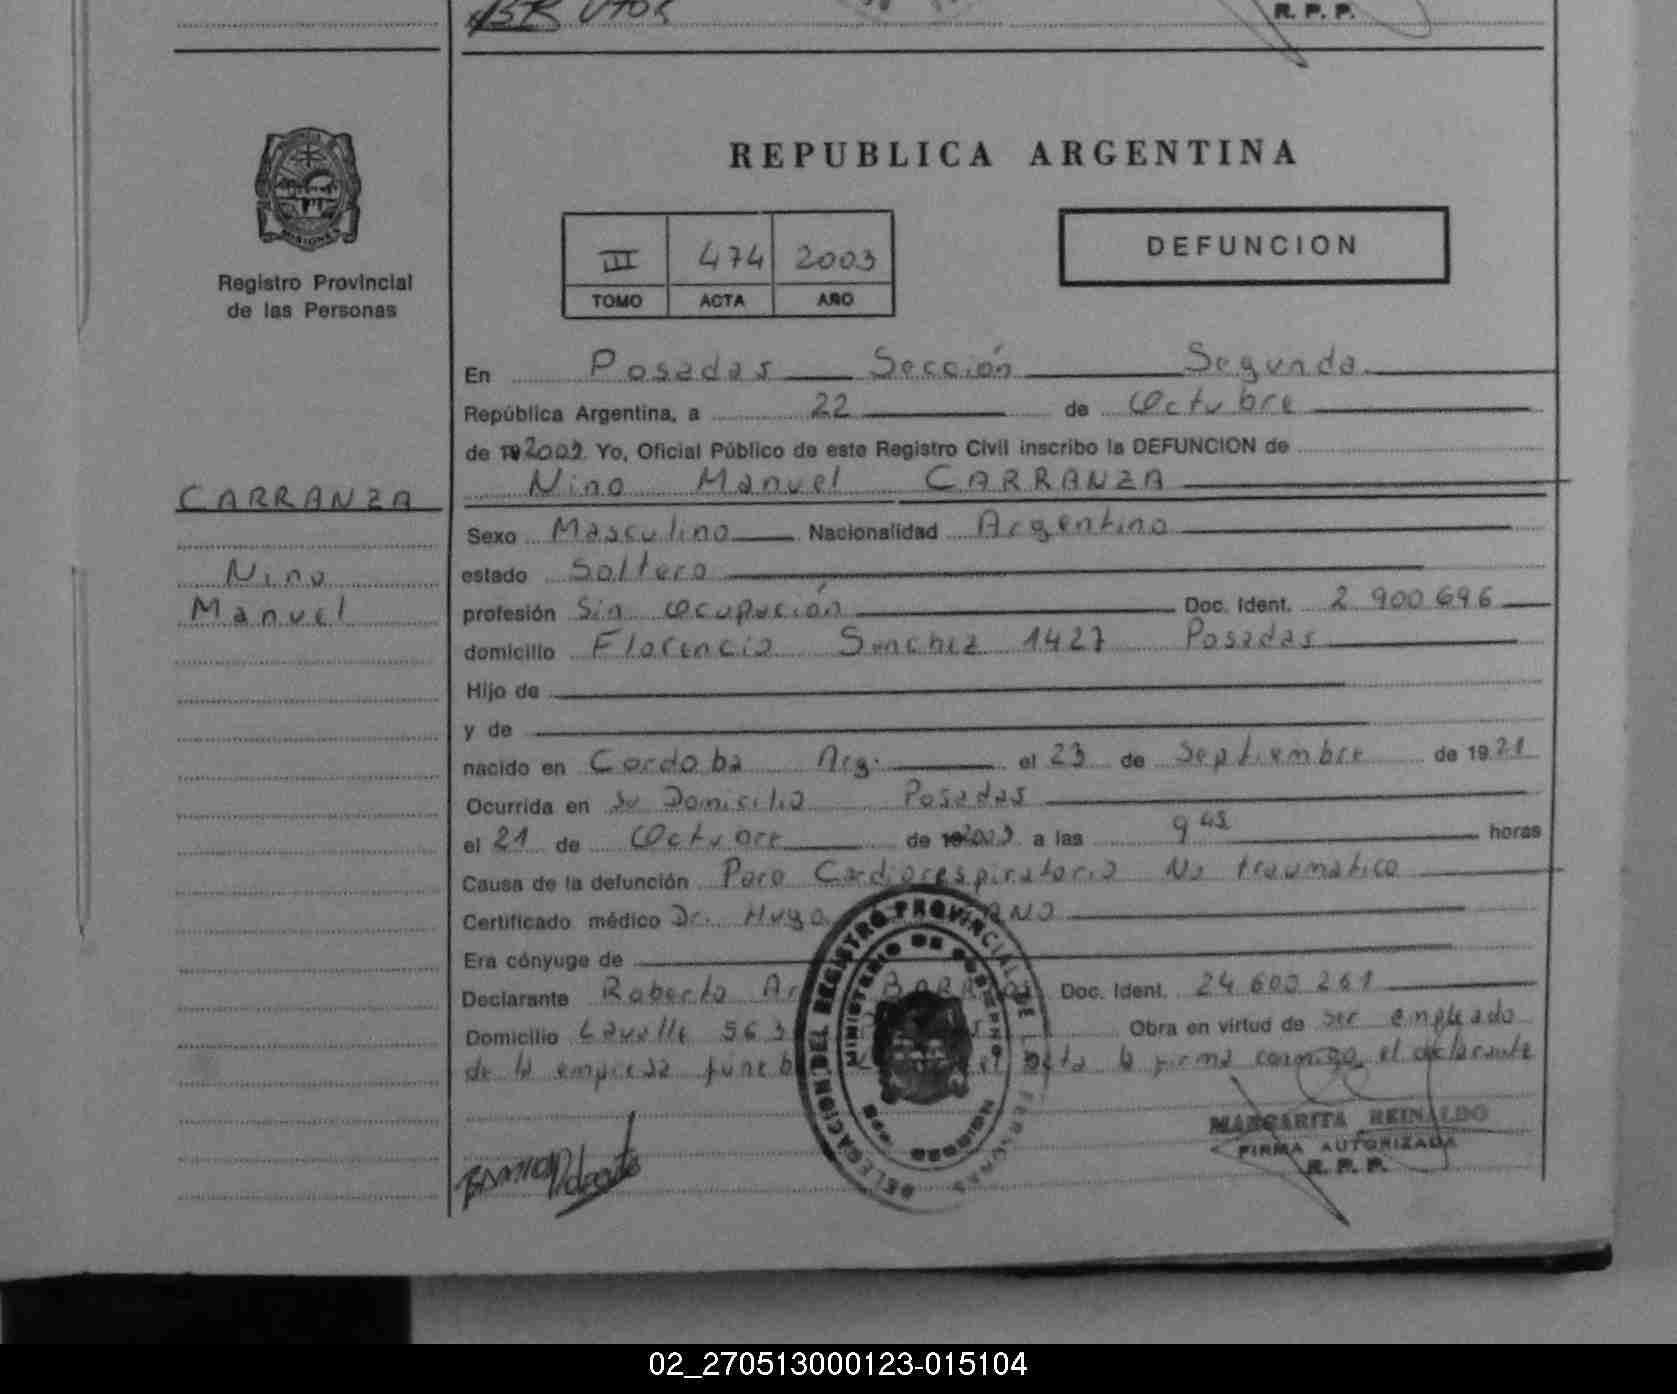 R. P. P.
REPUBLICA ARGENTINA
MISIONES
Registro Provincial
de las Personas
III 474 2003
TOMO ACTA AÑO
DEFUNCION
En Posadas Sección Segunda
República Argentina, a 22 de Octubre
de 2003 Yo, Oficial Público de este Registro Civil inscribo la DEFUNCION de
CARRANZA
Nino
Manuel
Nino Manuel CARRANZA
Sexo Masculino Nacionalidad Argentino
estado Soltero
profesión Sin Ocupación Doc. Ident. 2 900 696
domicilio Florencio Sanchez 1427 Posadas
Hijo de
y de
nacido en Cordoba Arg. el 23 de Septiembre de 1921
Ocurrida en su Domicilio Posadas
el 21 de Octubre de 2003 a las 9 45 horas
Causa de la defunción Paro Cardiorespiratorio No traumatico
Certificado médico Dr. Hugo
Era cónyuge de
Declarante Roberto Doc. Ident. 24 600 261
Domicilio Lavalle 563 Obra en virtud de ser empleado
de la empresa el acta la firma conmigo el declarante
DELEGACION DEL REGISTRO PROVINCIAL DE LAS PERSONAS
MINISTERIO DE GOBIERNO
MISIONES
MARGARITA REINALDO
FIRMA AUTORIZADA
R. P. P.
02_270513000123-015104